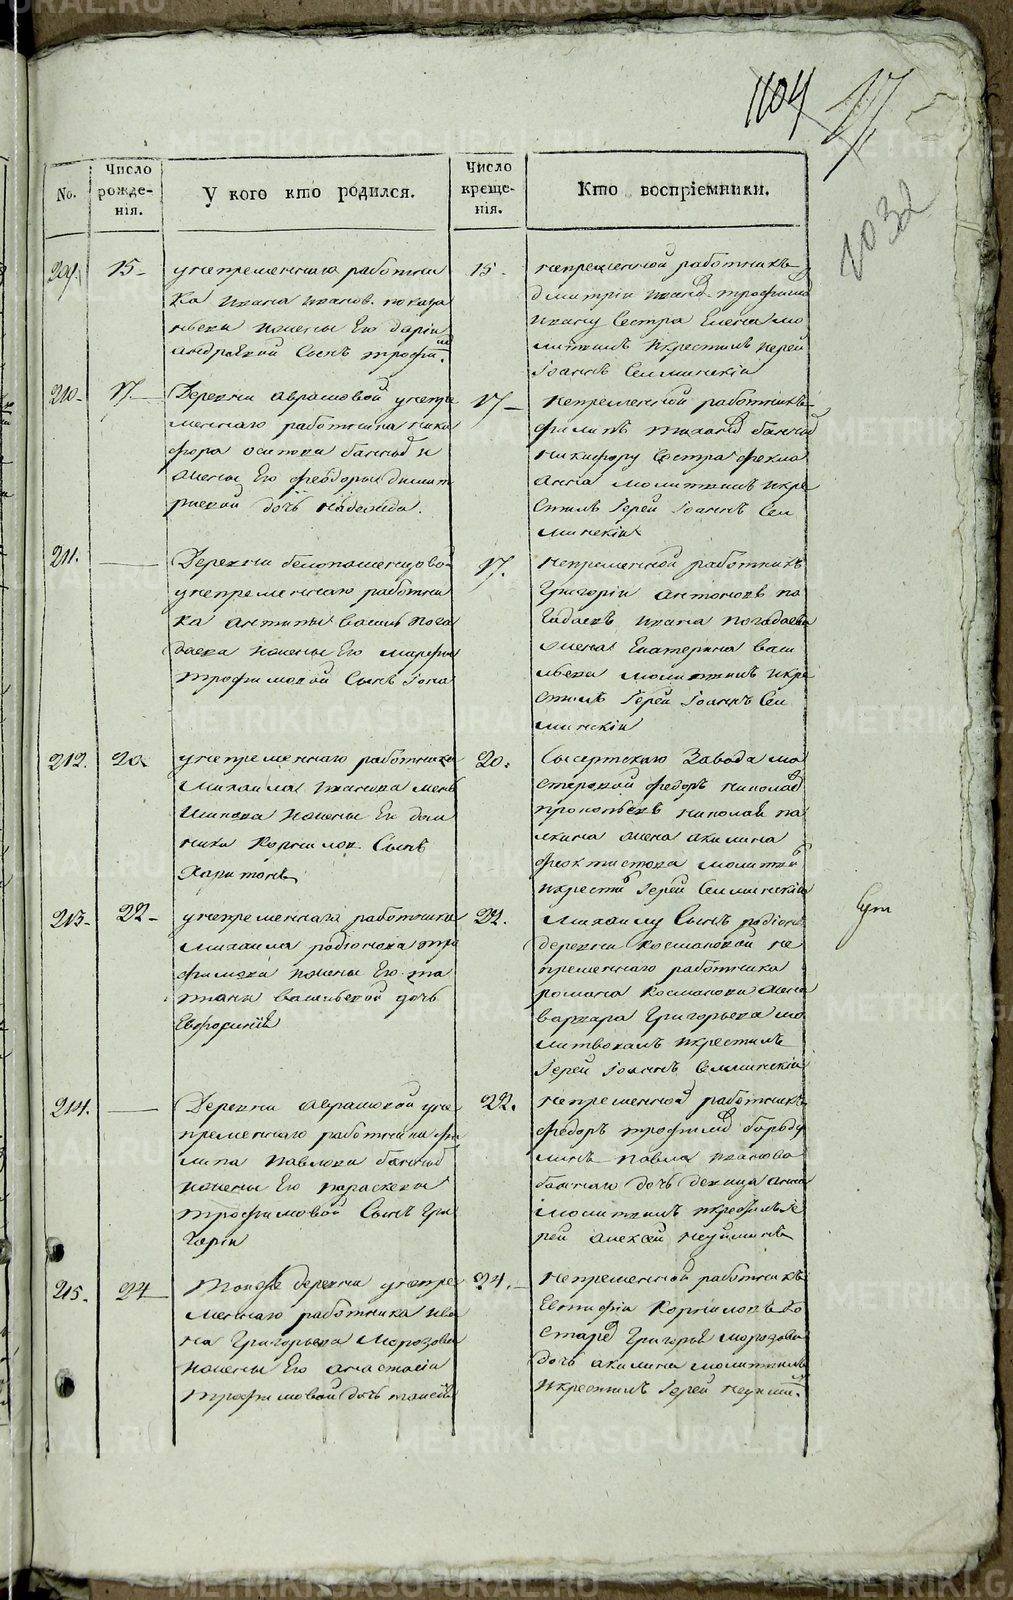 1104
17
1032
No.
Число рожденія.
У кого кто родился.
Число крещенія.
Кто воспріемники.
209.
15
у непременнаго работни
ка Ивана Иванов.
и жены Его Даріи
Андреевой Сынъ Трофим.
15.
непременной работникъ
Дмитрій Иванов Трофимов
Ивану Сестра Елена мо
литвилъ и крестилъ Иерей
Іоаннъ Селминскій
210
17
Деревни Аврашовой у непре
меннаго работника Ники
фора Осипова и
жены Его Феодоры Димит
ріевой дочь Надежда.
17
непременной работникъ
Филипъ
Никифору Сестра Фекла
молитвилъ и кре
стилъ Іерей Іоаннъ Сел
минскій
211.
Деревни
у непременнаго работни
ка Антипы Василь
и жены Его Марфы
Трофимовой Сынъ Іона
17.
непременной работникъ
Григорій Антоновъ по
гадаевъ Ивана Погадаева
жена Екатерина Васи
льева молитвилъ и кре
стилъ Іерей Іоаннъ Сел
минскій
212.
20
у непременнаго работника
Михаила Иванова мень
шикова и жены Его Дом
ники Корнилов. Сынъ
Харитонъ
20.
Сысертскаго Завода ма
стеровой Федоръ Николаев
Николая па
лкина жена Акилина
Феоктистова молитвил
и крестил Іерей Селминскій
213
22
у непременнаго работника
Михаила Родіонова Тро
фимова и жены Его Та
тіаны Васильевой дочь
Евфросинія
22.
Михаилу Сынъ Родіонъ
деревни Космаковой не
пременнаго работника
Романа Космакова жена
Варвара Григорьева мо
литвовалъ и крестилъ
Іерей Іоаннъ Селминскій
214.
Деревни Аврашовой у не
пременнаго работника Фи
липа Павлова
и жены Его Параскевы
Трофимовой Сынъ Гри
горій
22.
непременной работникъ
Федоръ Трофимов Борзду
Павла Иванова
дочь девица Анна
молитвилъ и крестилъ Іе
рей Алексей Неуйминъ
215.
24
Той же деревни у непре
меннаго работника Ива
на Григорьева Морозова
и жены Его Анастасіи
Трофимовой дочь Таисія
24.
непременной работникъ
Евтифій Корниловъ Ко
старев Григорья Морозова
дочь Акилина молитвилъ
и крестилъ Іерей Неуймин.
METRIKI.GASO-URAL.RU